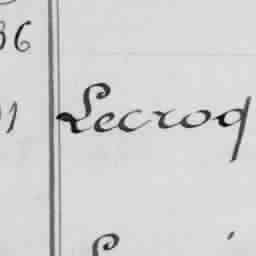 36
1 Lecroq